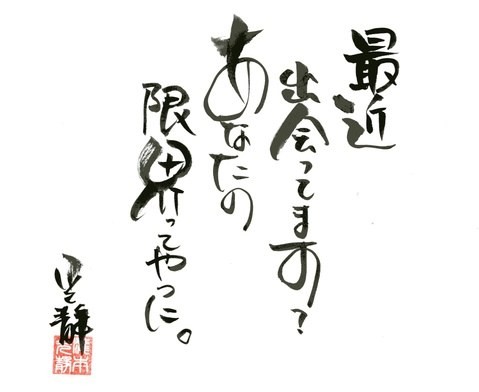 最近
出会ってます?
あなたの
限界ってやつに。